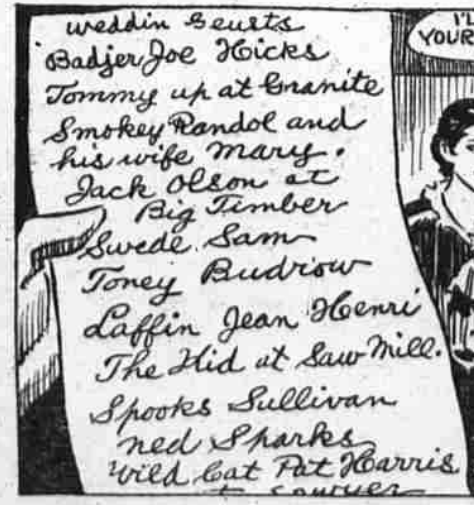 I'
YOUR
weddin Geusts
Badjer Joe Hicks
Tommy up at Granite
Smokey Randol and
his wife Mary.
Jack Olson at
Big Timber
Swede Sam
Toney Budriow
Laffin Jean Henri
The Hid at Saw Mill.
Spooks Sullivan
ned Sparks
Wild Cat Pat Harris
Sawyer